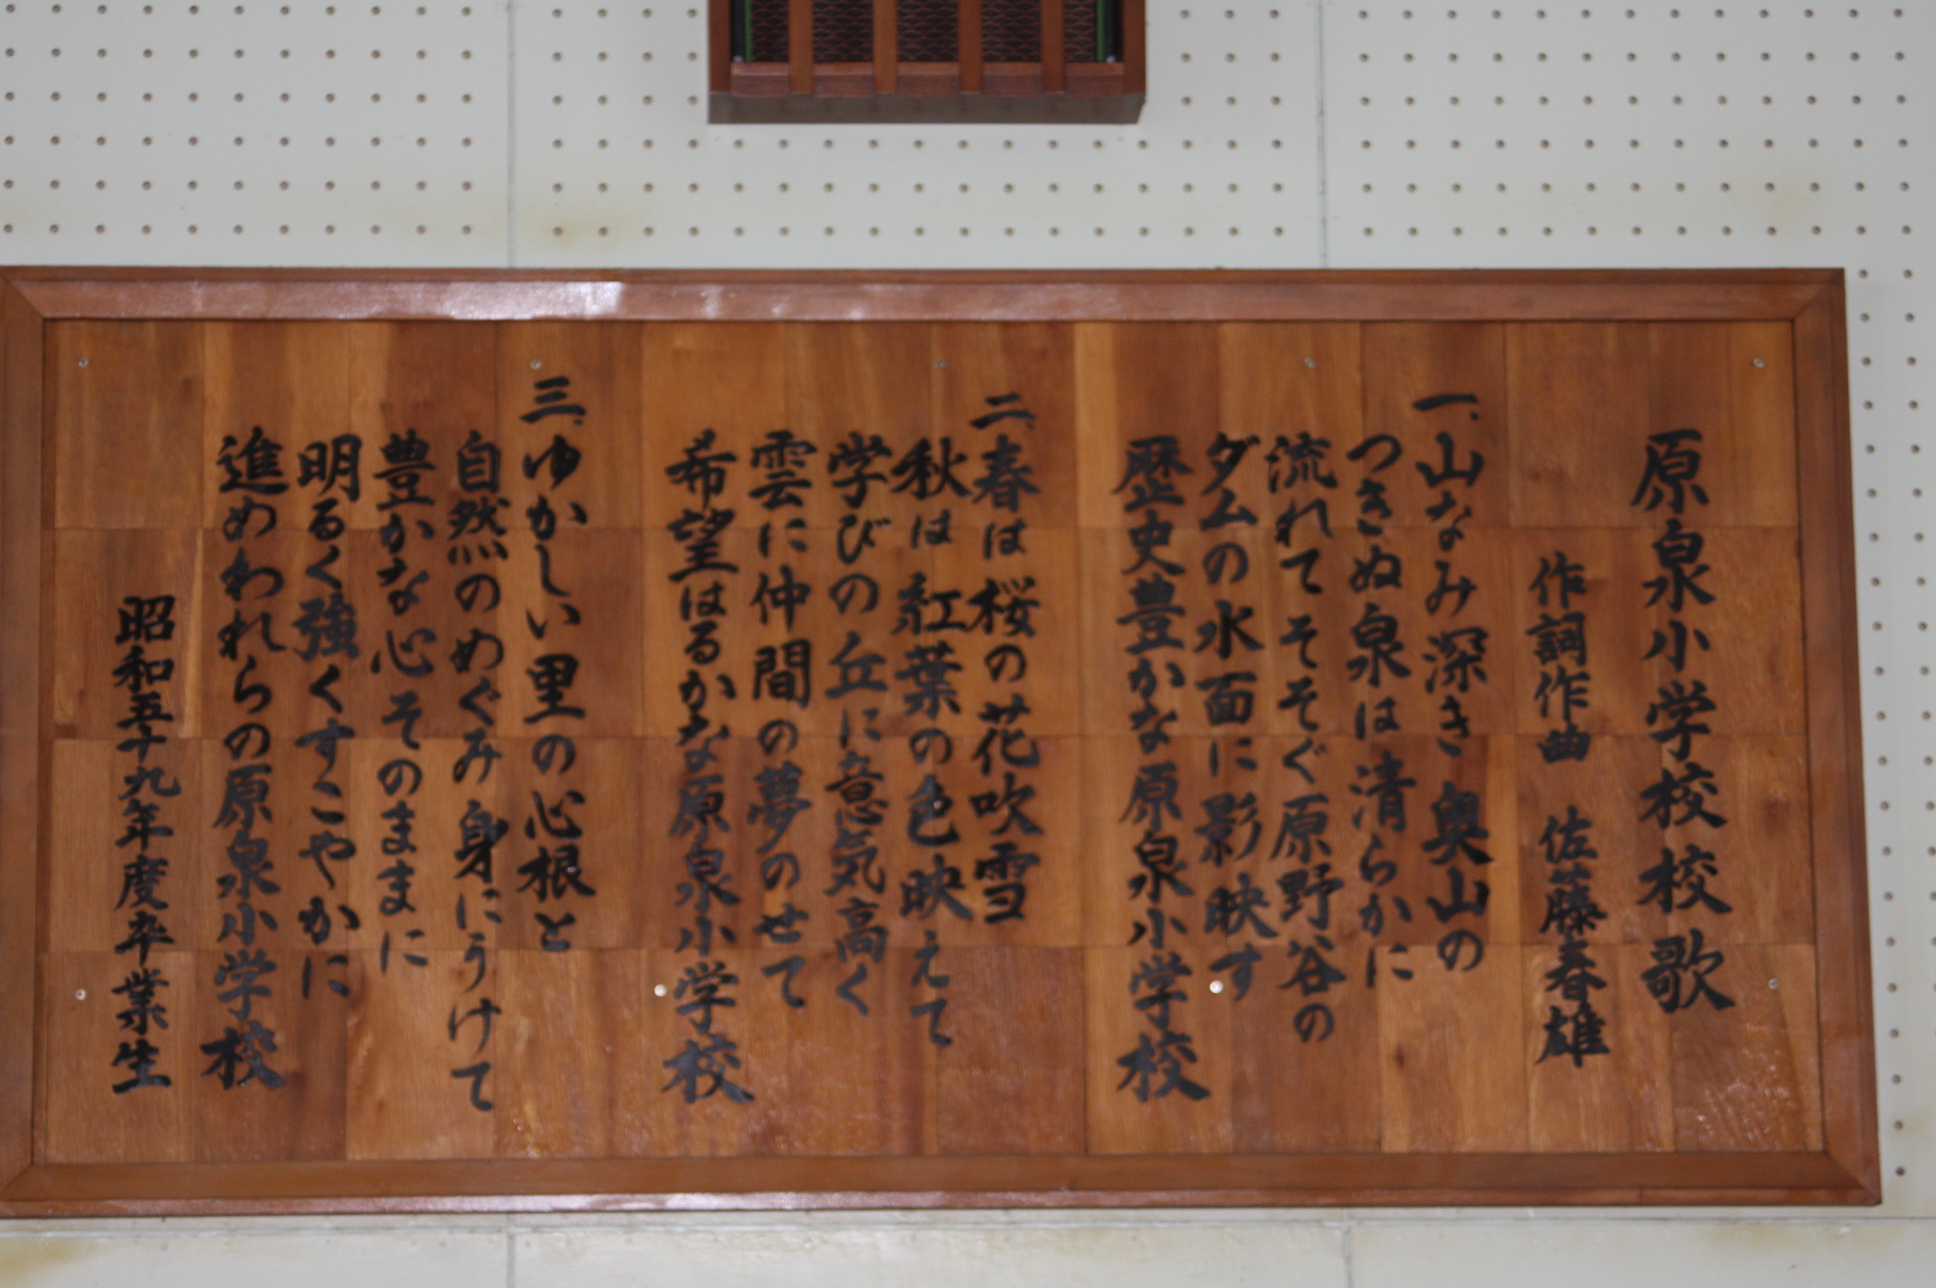 原泉小学校校歌
作詞作曲 佐藤春雄
一、山なみ深き奥山の
つきぬ泉は清らかに
流れてそそぐ原野谷の
ダムの水面に影映す
歴史豊かな原泉小学校
二、春は桜の花吹雪
秋は紅葉の色映えて
学びの丘に意気高く
雲に仲間の夢のせて
希望はるかな原泉小学校
三、ゆかしい里の心根と
自然のめぐみ身にうけて
豊かな心そのままに
明るく強くすこやかに
進めわれらの原泉小学校
昭和五十九年度卒業生